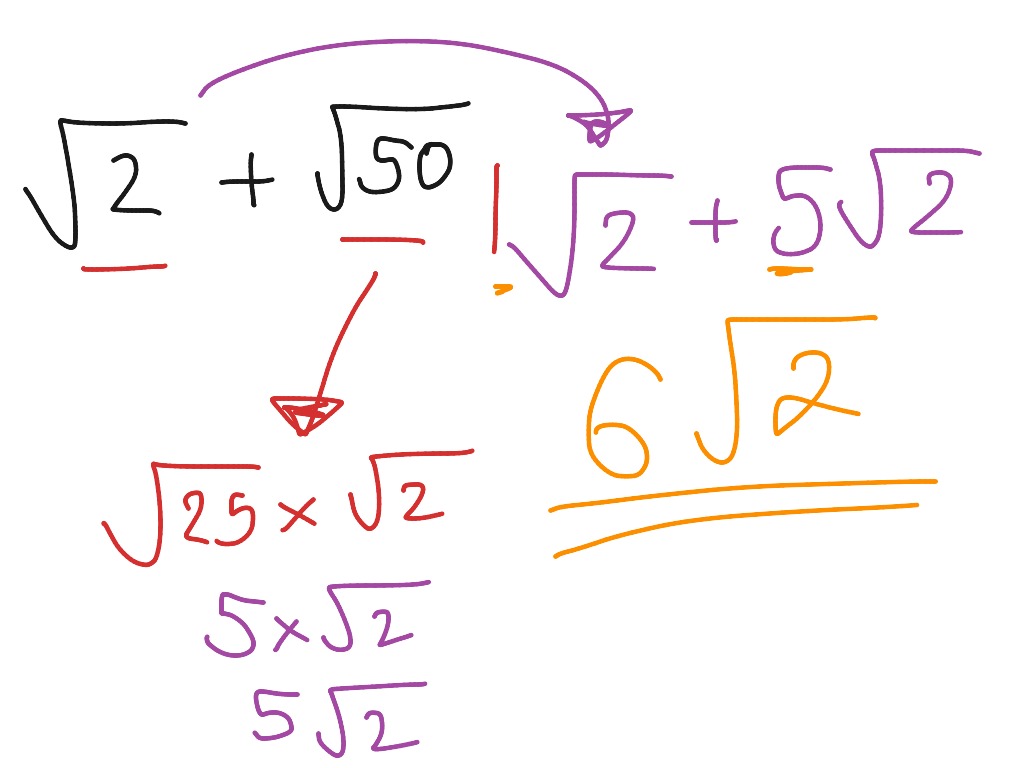 √2 + √50
1√2 + 5√2
6√2
√25 × √2
5 × √2
5√2